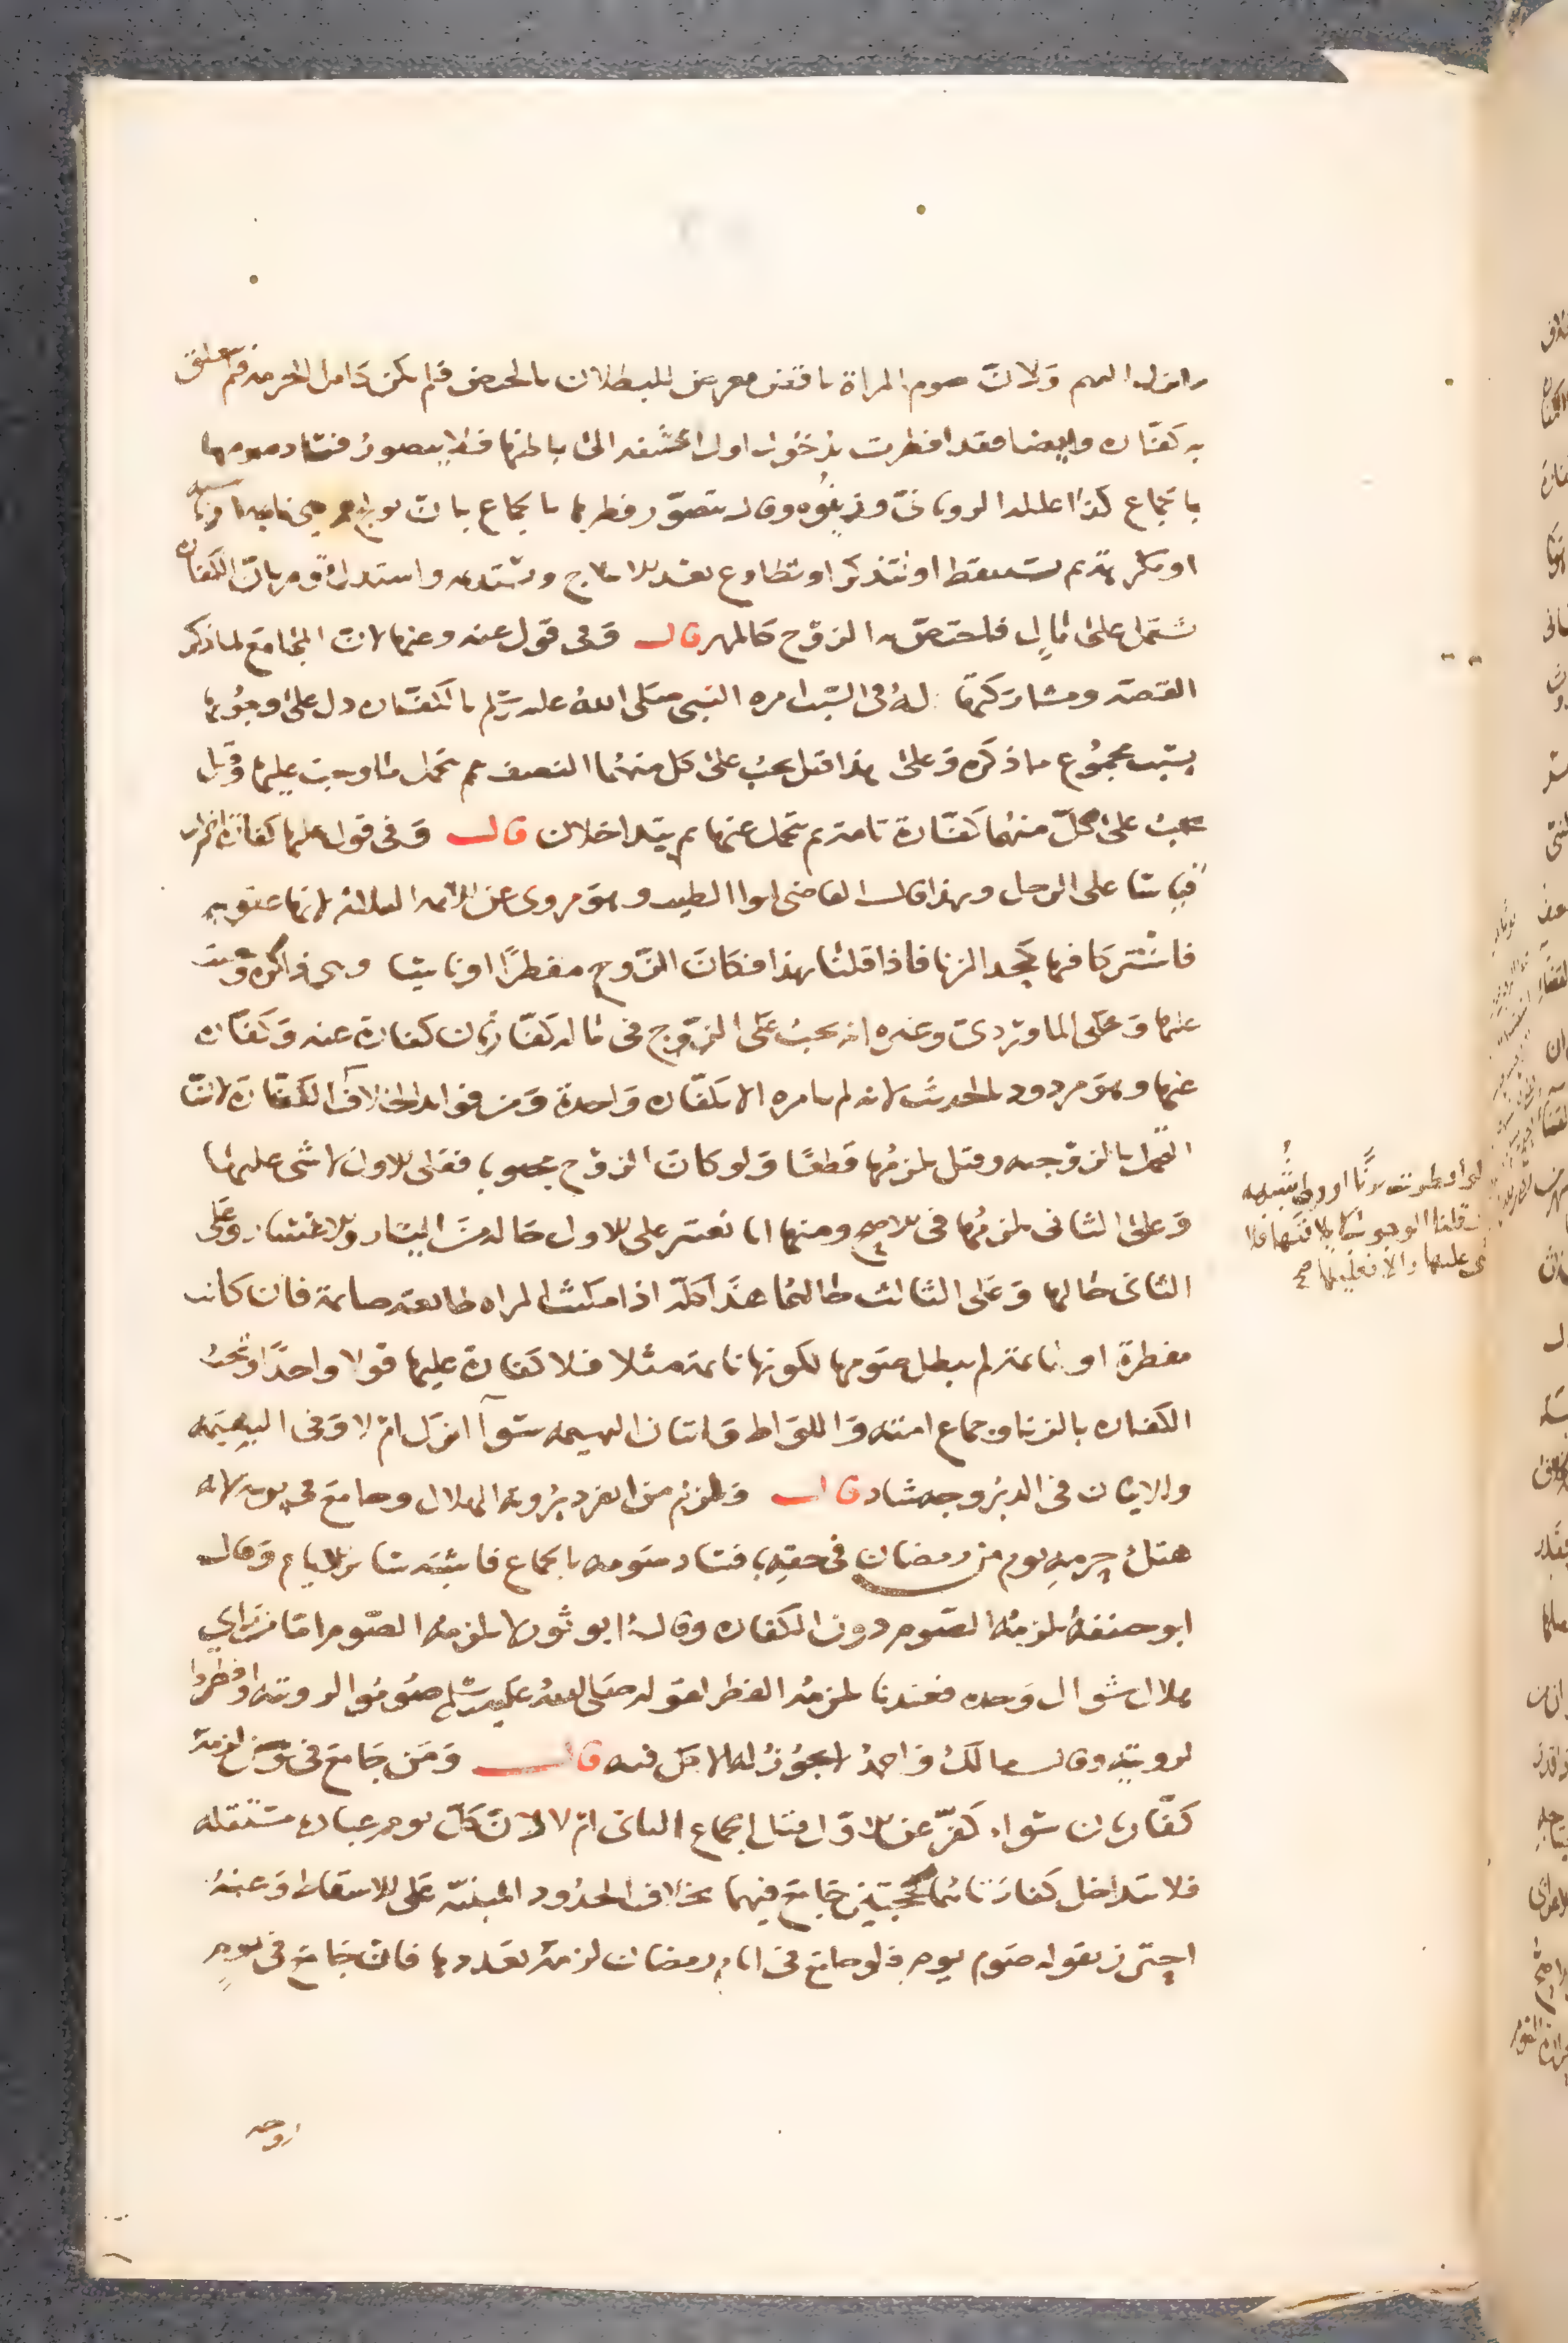 ولان صوم المراة ناقص معرض للبطلان بالحيض فلم يكن كامل الحرمة فلم يتعلق
به كفاره وايضا فقد افطرت بدخول اول الحشفه الى باطنها فلا يتصور فساد صومها
بالجماع كذا علله الروياني وزيفوه وقال يتصور فطرها بالجماع بان يولج وهي نايمه او ناسيه
او مكرهة ثم تستيقظ او تتذكر او تطاوع بعد الايلاج وتستديمه واستدل قوم بان الكفاره
على مال فاختص به الزوج كالمهر قال وفي قول عنه وعنها لان المجامع لما ذكر
القصة ومشاركتها له في السبب امره النبي صلى الله عليه وسلم بالكفاره دل على وجوبها
بسبب مجموع ما ذكره وعلى هذا قيل يجب على كل منهما النصف ثم تحمل ما وجب عليها وقيل
يجب على كل منهما كفارة تامة ثم تحمل عنها ثم يتداخلان قال وفي قول عليها كفارة اخرى
قياسا على الرجل وبهذا قال القاضي ابو الطيب وهو مروي عن الائمه الثلاثه لانها عقوبه
فاشتركا فيها كحد الزنا فاذا قلنا بهذا فكان الزوج مفطرا او ناسيا وهي ذاكره وجبت
عليها وعلى الماوردي وغيره انه يجب على الزوج في ماله كفارتان كفارة عنه وكفاره
عنها وهو مردود بالحديث لانه لم يامره الا بكفاره واحدة ومن فوايد الخلاف الكفارة لانا
بالزوجيه وقيل يلزمها قطعا ولو كان الزوج مجنونا فعلى الاول لا شي عليها
وعلى الثاني يلزمها في الاصح ومنها انا نعتبر على الاول حاله من اليسار والاعسار وعلى
الثاني حالها وعلى الثالث حالهما هذا كله اذا مكنت المراه طايعة صايمة فان كانت
مفطرة او نايمة لم يبطل صومها لكونها نايمة مثلا فلا كفارة عليها قولا واحدا وتجب
الكفاره بالزنا وجماع امته واللواط واتيان البهيمه سوآ انزل ام لا وفي البهيمه
والاتيان في الدبر وجه شاذ قال وتلزم من انفرد برؤية الهلال وجامع في يومه لانه
هتك حرمة يوم من رمضان في حقه بافساد صومه بالجماع فاشبه سائر الايام وقال
ابو حنيفة يلزمه الصوم دون الكفاره وقال ابو ثور لا يلزمه الصوم اما من راي
هلال شوال وحده فعندنا يلزمه الفطر لقوله صلى الله عليه وسلم صوموا لرويته وافطروا
لرويته وقال مالك واحمد لا يجوز له الاكل فيه قال ومن جامع في يومين لزمه
كفارتان سواء كفر عن الاول قبل الجماع الثاني ام لا لان كل يوم عباده مستقله
فلا تتداخل كفارتاهما كحجتين جامع فيهما بخلاف الحدود المبنيه على الاسقاط وعنه
احترز بقوله صوم يوم فلو جامع في ايام رمضان لزمه بعددها فان جامع في يوم
زوجه
قلنا الوجوب لاقتها فلا
شي عليها والا فعليها صح